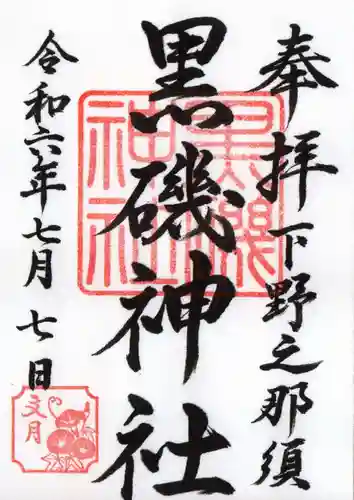 奉拝下野之那須
黒磯神社
令和六年七月七日
黒磯神社
文月